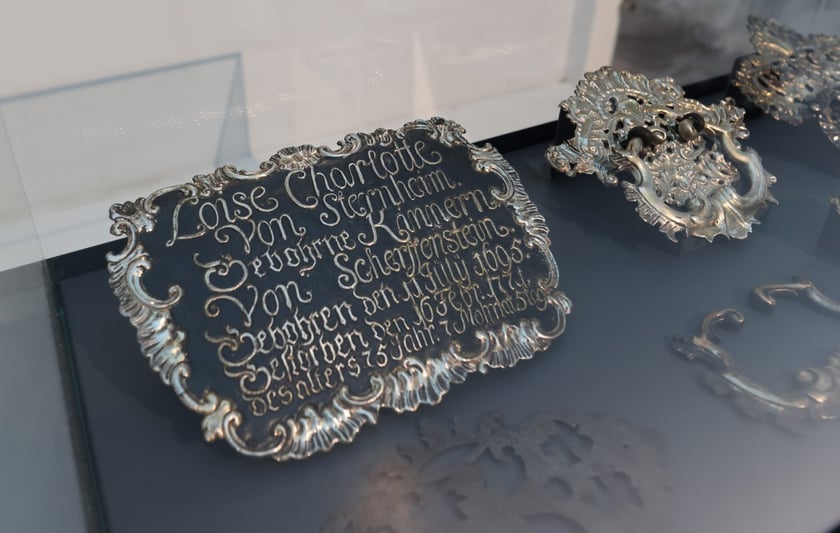 Loise Charlotte
Von Sternheim.
Gebohrne Kannern
Von Scherffenstein
Gebohren den 11 Julÿ 1695.
Gestorben den 16
Des alters 75 Jahr 7 Monnat 5